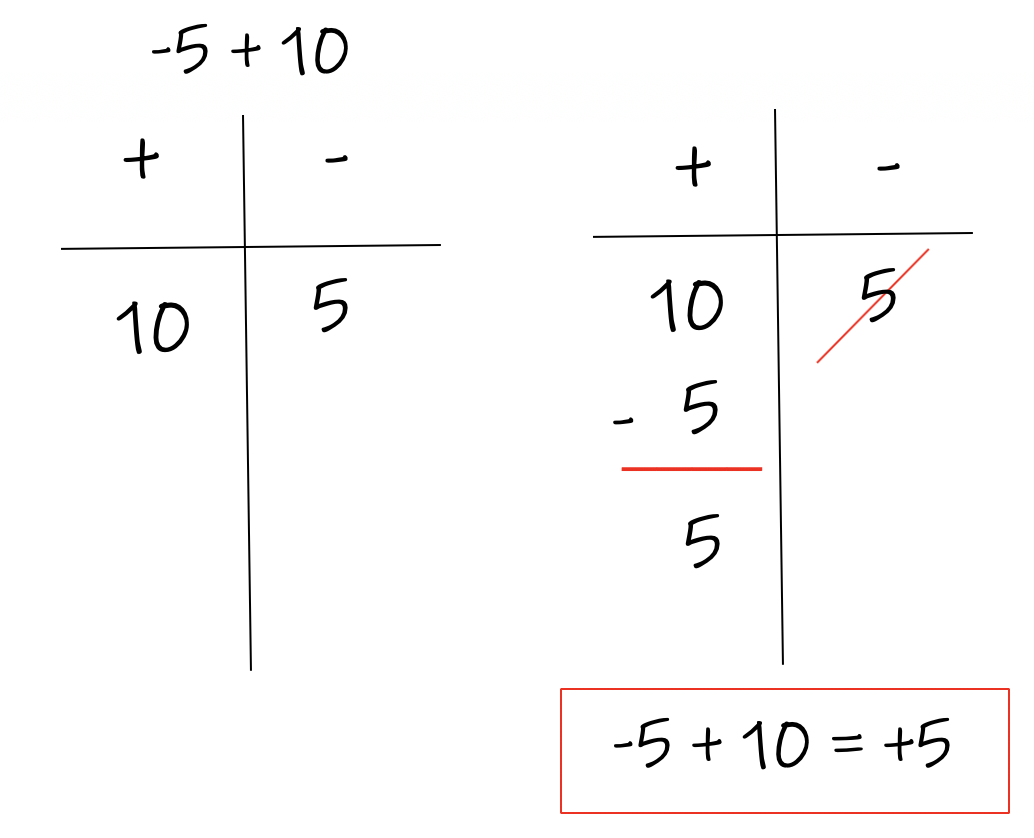 -5 + 10
+ -
10 5
+ -
10 5
- 5
5
-5 + 10 = +5